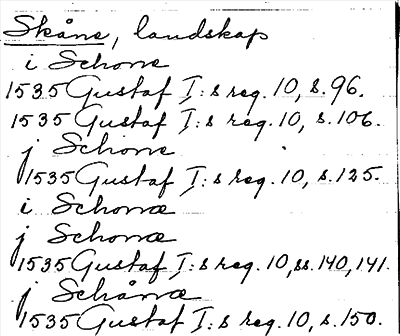 Skåne, landskap
i Schone
1535 Gustaf I:s reg. 10, s. 96.
1535 Gustaf I:s reg. 10, s. 106.
j Schone
1535 Gustaf I:s reg. 10, s. 125.
i Schonæ
j Schonæ
1535 Gustaf I:s reg. 10, ss. 140, 141.
j Schånæ
1535 Gustaf I:s reg. 10, s. 150.